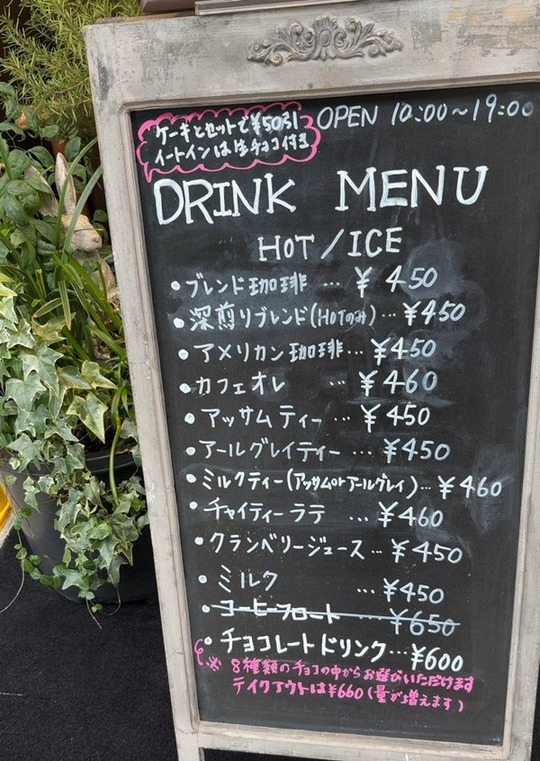 ケーキとセットで¥50引
イートインは生チョコ付き
OPEN 10:00～19:00
DRINK MENU
HOT/ICE
•ブレンド珈琲 … ¥450
•深煎りブレンド(HOTのみ) … ¥450
•アメリカン珈琲 … ¥450
•カフェオレ … ¥460
•アッサムティー … ¥450
•アールグレイティー … ¥450
•ミルクティー(アッサムorアールグレイ) … ¥460
•チャイティーラテ … ¥460
•クランベリージュース … ¥450
•ミルク … ¥450
•コーヒーフロート ¥650
•チョコレートドリンク … ¥600
※8種類のチョコの中からお選びいただけます
テイクアウトは¥660(量が増えます)